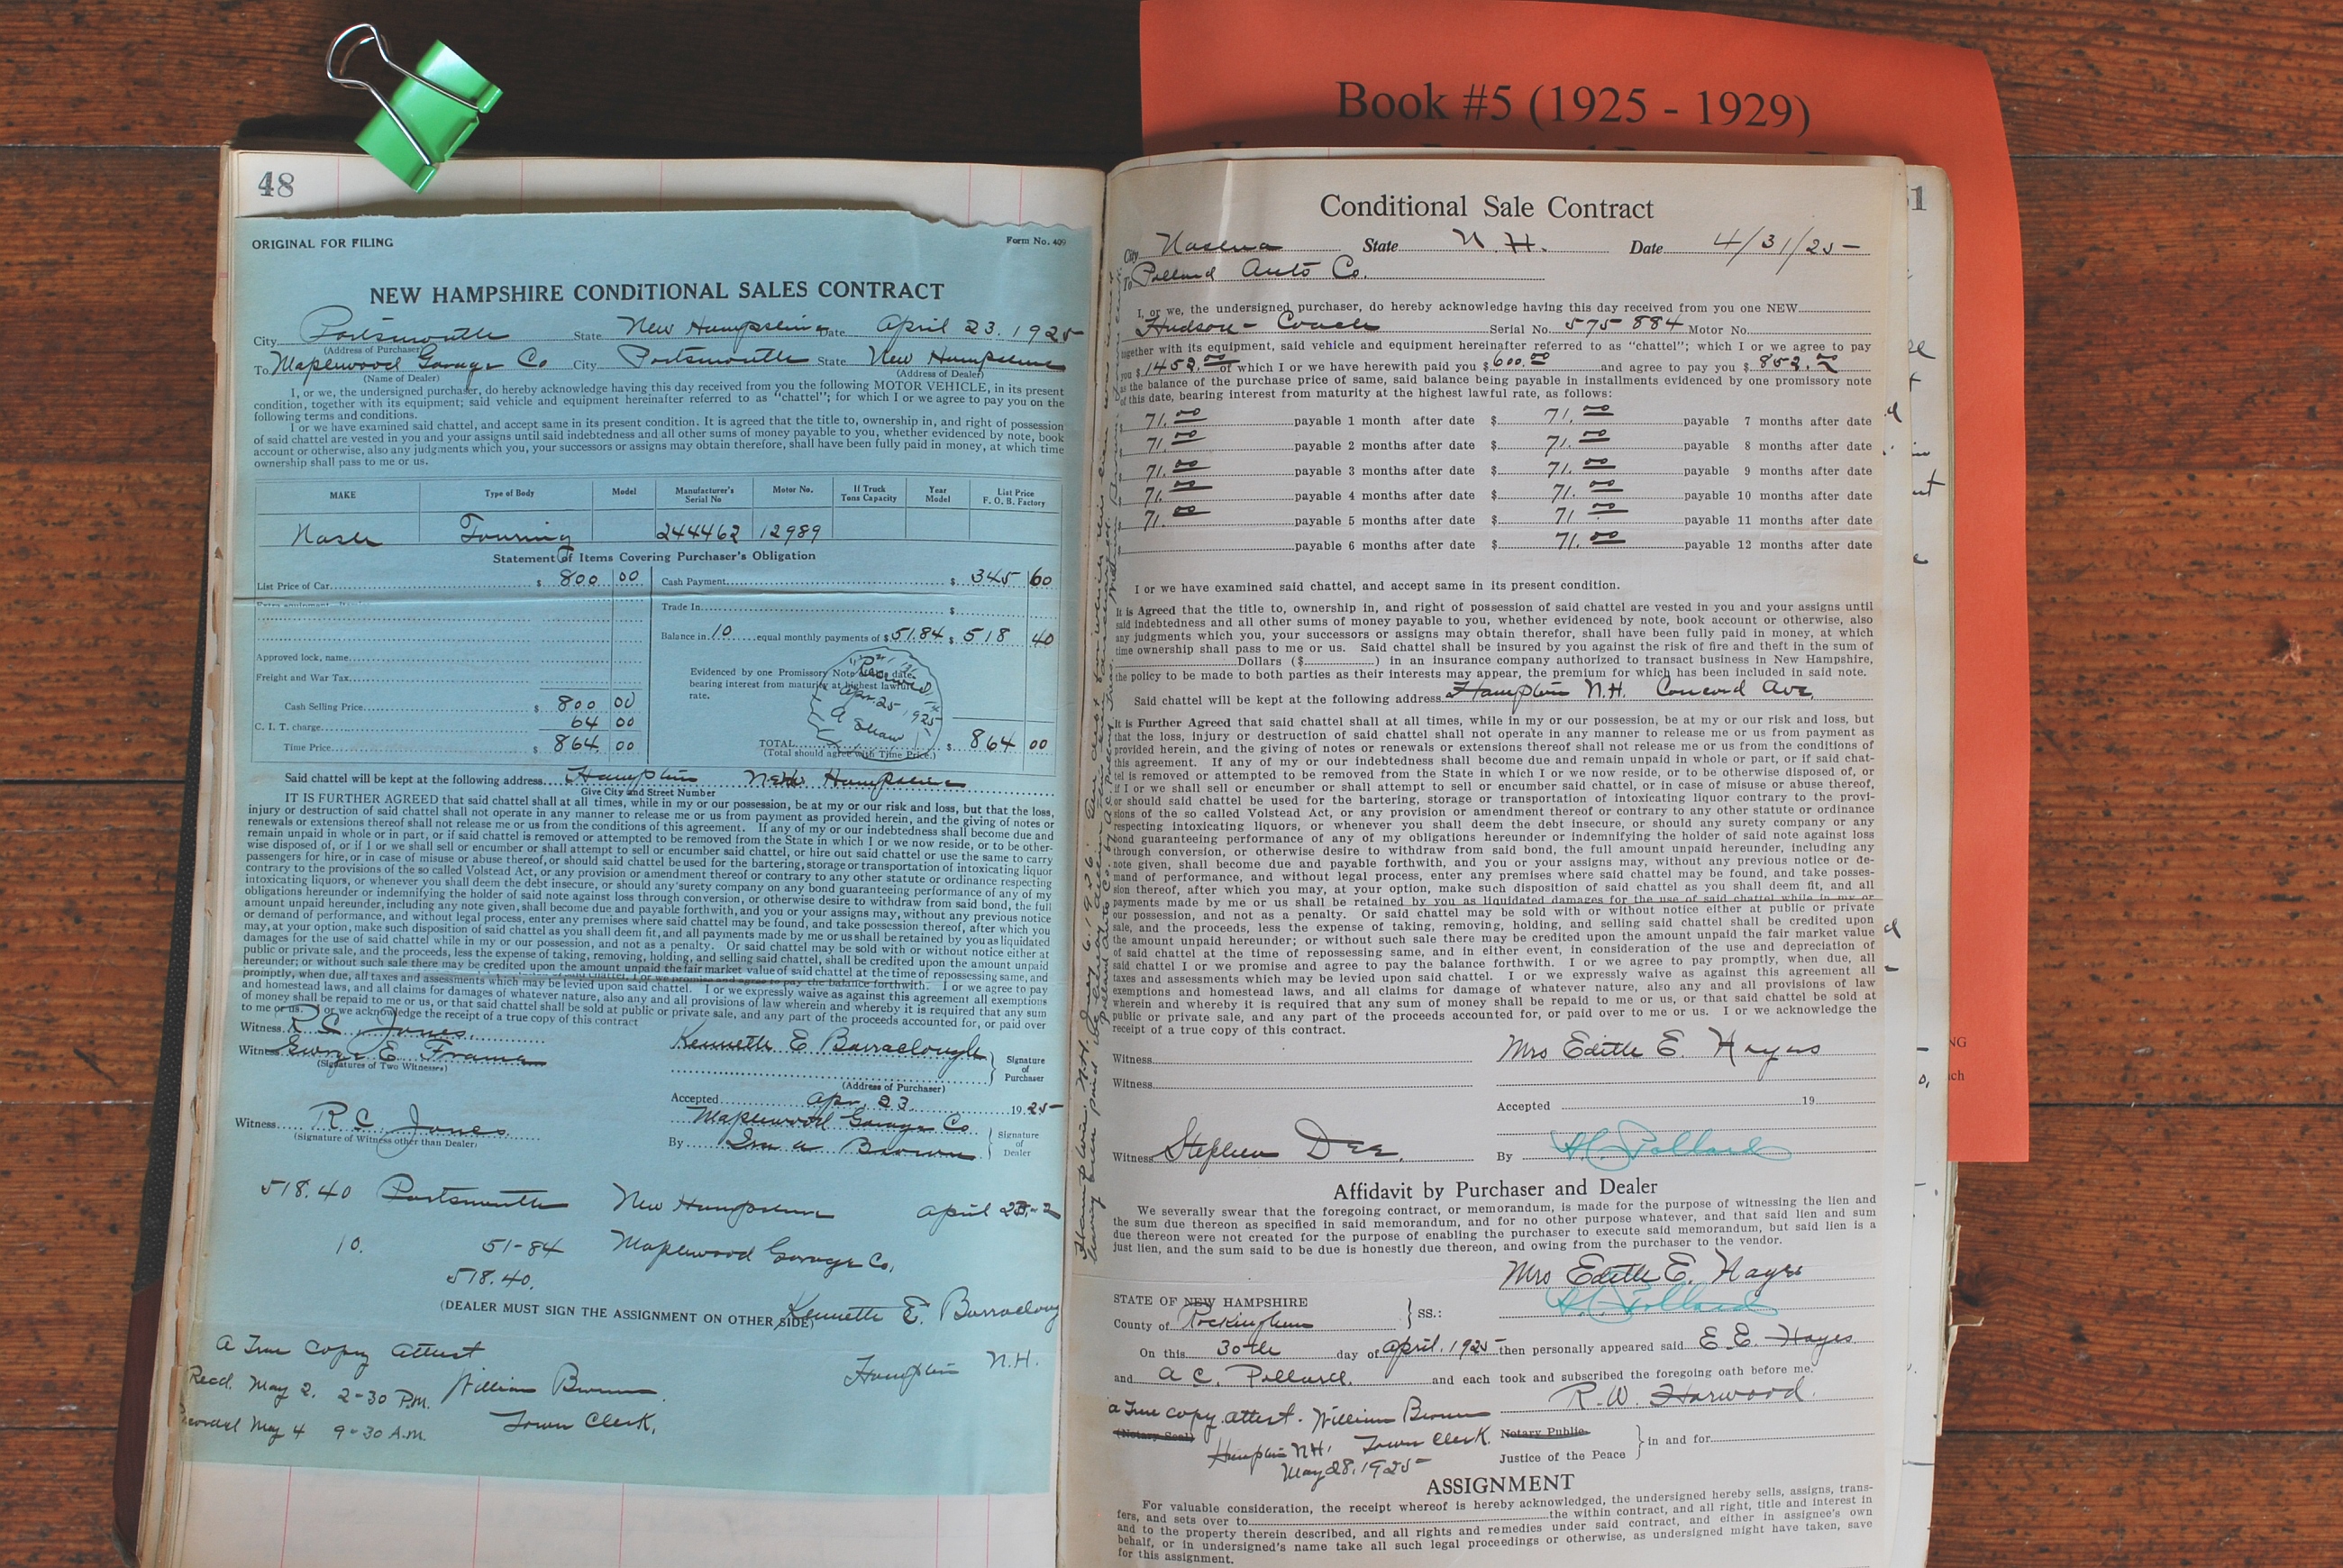 Book #5 (1925 - 1929)
48
ORIGINAL FOR FILING
Form No. 409
NEW HAMPSHIRE CONDITIONAL SALES CONTRACT
City Portsmouth State New Hampshire Date April 23, 1925
(Address of Purchaser)
To Maplewood Garage Co City Portsmouth State New Hampshire
(Name of Dealer) (Address of Dealer)
I, or we, the undersigned purchaser, do hereby acknowledge having this day received from you the following MOTOR VEHICLE, in its present
condition, together with its equipment; said vehicle and equipment hereinafter referred to as "chattel"; for which I or we agree to pay you on the
following terms and conditions.
I or we have examined said chattel, and accept same in its present condition. It is agreed that the title to, ownership in, and right of possession
of said chattel are vested in you and your assigns until said indebtedness and all other sums of money payable to you, whether evidenced by note, book
account or otherwise, also any judgments which you, your successors or assigns may obtain therefore, shall have been fully paid in money, at which time
ownership shall pass to me or us.
MAKE Type of Body Model Manufacturer's Serial No Motor No. If Truck Tons Capacity Year Model List Price F. O. B. Factory
Nash Touring 244462 12989
Statement of Items Covering Purchaser's Obligation
List Price of Car $ 800 00 Cash Payment $ 345 60
Trade In $
Balance in 10 equal monthly payments of $ 51.84 $ 518 40
Approved lock, name
Freight and War Tax
Evidenced by one Promissory Note
bearing interest from maturity at highest lawful
rate.
Apr. 25, 1925
A Shaw
Cash Selling Price $ 800 00
C. I. T. charge 64 00
Time Price $ 864 00
TOTAL $ 864 00
(Total should agree with Time Price.)
Said chattel will be kept at the following address Hampton New Hampshire
Give City and Street Number
IT IS FURTHER AGREED that said chattel shall at all times, while in my or our possession, be at my or our risk and loss, but that the loss,
injury or destruction of said chattel shall not operate in any manner to release me or us from payment as provided herein, and the giving of notes or
renewals or extensions thereof shall not release me or us from the conditions of this agreement. If any of my or our indebtedness shall become due and
remain unpaid in whole or in part, or if said chattel is removed or attempted to be removed from the State in which I or we now reside, or to be other-
wise disposed of, or if I or we shall sell or encumber or shall attempt to sell or encumber said chattel, or hire out said chattel or use the same to carry
passengers for hire, or in case of misuse or abuse thereof, or should said chattel be used for the bartering, storage or transportation of intoxicating liquor
contrary to the provisions of the so called Volstead Act, or any provision or amendment thereof or contrary to any other statute or ordinance respecting
intoxicating liquors, or whenever you shall deem the debt insecure, or should any surety company on any bond guaranteeing performance of any of my
obligations hereunder or indemnifying the holder of said note against loss through conversion, or otherwise desire to withdraw from said bond, the full
amount unpaid hereunder, including any note given, shall become due and payable forthwith, and you or your assigns may, without any previous notice
or demand of performance, and without legal process, enter any premises where said chattel may be found, and take possession thereof, after which you
may, at your option, make such disposition of said chattel as you shall deem fit, and all payments made by me or us shall be retained by you as liquidated
damages for the use of said chattel while in my or our possession, and not as a penalty. Or said chattel may be sold with or without notice either at
public or private sale, and the proceeds, less the expense of taking, removing, holding, and selling said chattel, shall be credited upon the amount unpaid
hereunder; or without such sale there may be credited upon the amount unpaid the fair market value of said chattel at the time of repossessing same, and
I or we promise and agree to pay the balance forthwith. I or we agree to pay
promptly, when due, all taxes and assessments which may be levied upon said chattel. I or we expressly waive as against this agreement all exemptions
and homestead laws, and all claims for damages of whatever nature, also any and all provisions of law wherein and whereby it is required that any sum
of money shall be repaid to me or us, or that said chattel shall be sold at public or private sale, and any part of the proceeds accounted for, or paid over
to me or us. I or we acknowledge the receipt of a true copy of this contract
Witness R C Jones.
Witness George E.
(Signatures of Two Witnesses)
Kenneth E Barraclough
Signature of Purchaser
(Address of Purchaser)
Accepted Apr. 23 1925
Maplewood Garage Co
Witness R C Jones
(Signature of Witness other than Dealer)
By Ira A Brown
Signature of Dealer
518.40 Portsmouth New Hampshire April
10. 51-84 Maplewood Garage Co.
518.40.
(DEALER MUST SIGN THE ASSIGNMENT ON OTHER SIDE)
Kenneth E. Barraclough
Hampton N.H.
A True Copy Attest
Recd. May 2, 2-30 P.M. William Brown
Recorded May 4 9-30 A.M. Town Clerk.
Conditional Sale Contract
City Nashua State N. H. Date 4/31/25
To Pollard Auto Co.
I, or we, the undersigned purchaser, do hereby acknowledge having this day received from you one NEW
Hudson - Coach Serial No. 575884 Motor No.
together with its equipment, said vehicle and equipment hereinafter referred to as "chattel"; which I or we agree to pay
you $ 1452.00 of which I or we have herewith paid you $ 600.00 and agree to pay you $ 852.00
as the balance of the purchase price of same, said balance being payable in installments evidenced by one promissory note
of this date, bearing interest from maturity at the highest lawful rate, as follows:
71.00 payable 1 month after date $ 71.00 payable 7 months after date
71.00 payable 2 months after date $ 71.00 payable 8 months after date
71.00 payable 3 months after date $ 71.00 payable 9 months after date
71.00 payable 4 months after date $ 71.00 payable 10 months after date
71.00 payable 5 months after date $ 71.00 payable 11 months after date
payable 6 months after date $ 71.00 payable 12 months after date
I or we have examined said chattel, and accept same in its present condition.
It is Agreed that the title to, ownership in, and right of possession of said chattel are vested in you and your assigns until
said indebtedness and all other sums of money payable to you, whether evidenced by note, book account or otherwise, also
any judgments which you, your successors or assigns may obtain therefor, shall have been fully paid in money, at which
time ownership shall pass to me or us. Said chattel shall be insured by you against the risk of fire and theft in the sum of
Dollars ($ ) in an insurance company authorized to transact business in New Hampshire,
the policy to be made to both parties as their interests may appear, the premium for which has been included in said note.
Said chattel will be kept at the following address Hampton N.H. Concord Ave,
It is Further Agreed that said chattel shall at all times, while in my or our possession, be at my or our risk and loss, but
that the loss, injury or destruction of said chattel shall not operate in any manner to release me or us from payment as
provided herein, and the giving of notes or renewals or extensions thereof shall not release me or us from the conditions of
this agreement. If any of my or our indebtedness shall become due and remain unpaid in whole or in part, or if said chat-
tel is removed or attempted to be removed from the State in which I or we now reside, or to be otherwise disposed of, or
if I or we shall sell or encumber or shall attempt to sell or encumber said chattel, or in case of misuse or abuse thereof,
or should said chattel be used for the bartering, storage or transportation of intoxicating liquor contrary to the provi-
sions of the so called Volstead Act, or any provision or amendment thereof or contrary to any other statute or ordinance
respecting intoxicating liquors, or whenever you shall deem the debt insecure, or should any surety company or any
bond guaranteeing performance of any of my obligations hereunder or indemnifying the holder of said note against loss
through conversion, or otherwise desire to withdraw from said bond, the full amount unpaid hereunder, including any
note given, shall become due and payable forthwith, and you or your assigns may, without any previous notice or de-
mand of performance, and without legal process, enter any premises where said chattel may be found, and take posses-
sion thereof, after which you may, at your option, make such disposition of said chattel as you shall deem fit, and all
payments made by me or us shall be retained by you as liquidated damages for the use of said chattel while in my or
our possession, and not as a penalty. Or said chattel may be sold with or without notice either at public or private
sale, and the proceeds, less the expense of taking, removing, holding, and selling said chattel shall be credited upon
the amount unpaid hereunder; or without such sale there may be credited upon the amount unpaid the fair market value
of said chattel at the time of repossessing same, and in either event, in consideration of the use and depreciation of
said chattel I or we promise and agree to pay the balance forthwith. I or we agree to pay promptly, when due, all
taxes and assessments which may be levied upon said chattel. I or we expressly waive as against this agreement all
exemptions and homestead laws, and all claims for damage of whatever nature, also any and all provisions of law
wherein and whereby it is required that any sum of money shall be repaid to me or us, or that said chattel shall be sold at
public or private sale, and any part of the proceeds accounted for, or paid over to me or us. I or we acknowledge the
receipt of a true copy of this contract.
Witness
Mrs Edith E. Hayes
Witness
Accepted 19
Witness Stephen Dee.
By A C Pollard
Affidavit by Purchaser and Dealer
We severally swear that the foregoing contract, or memorandum, is made for the purpose of witnessing the lien and
the sum due thereon as specified in said memorandum, and for no other purpose whatever, and that said lien and sum
due thereon were not created for the purpose of enabling the purchaser to execute said memorandum, but said lien is a
just lien, and the sum said to be due is honestly due thereon, and owing from the purchaser to the vendor.
Mrs Edith E. Hayes
A C Pollard
STATE OF NEW HAMPSHIRE
County of Rockingham SS.:
On this 30th day of April, 1925 then personally appeared said E. E. Hayes
and A C. Pollard. and each took and subscribed the foregoing oath before me.
R. W. Harwood.
A True copy attest. William Brown
(Notary Seal)
Hampton N.H. Town Clerk.
May 28, 1925
Notary Public
Justice of the Peace in and for
ASSIGNMENT
For valuable consideration, the receipt whereof is hereby acknowledged, the undersigned hereby sells, assigns, trans-
fers, and sets over to the within contract, and all right, title and interest in
and to the property therein described, and all rights and remedies under said contract, and either in assignee's own
behalf, or in undersigned's name take all such legal proceedings or otherwise, as undersigned might have taken, save
for this assignment.